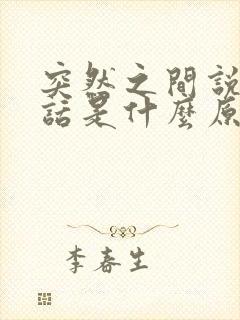 突然之間說
話是什麼原
李春生